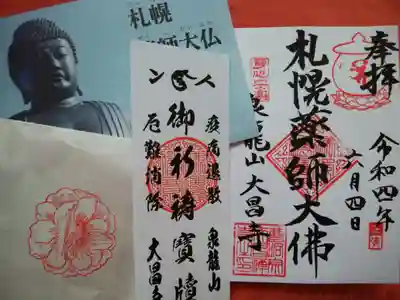 札幌
薬師大仏
御祈祷寶牘
疫病退散
厄難消除
泉龍山
大昌寺
奉拝
札幌薬師大佛
泉龍山 大昌寺
令和四年
六月四日